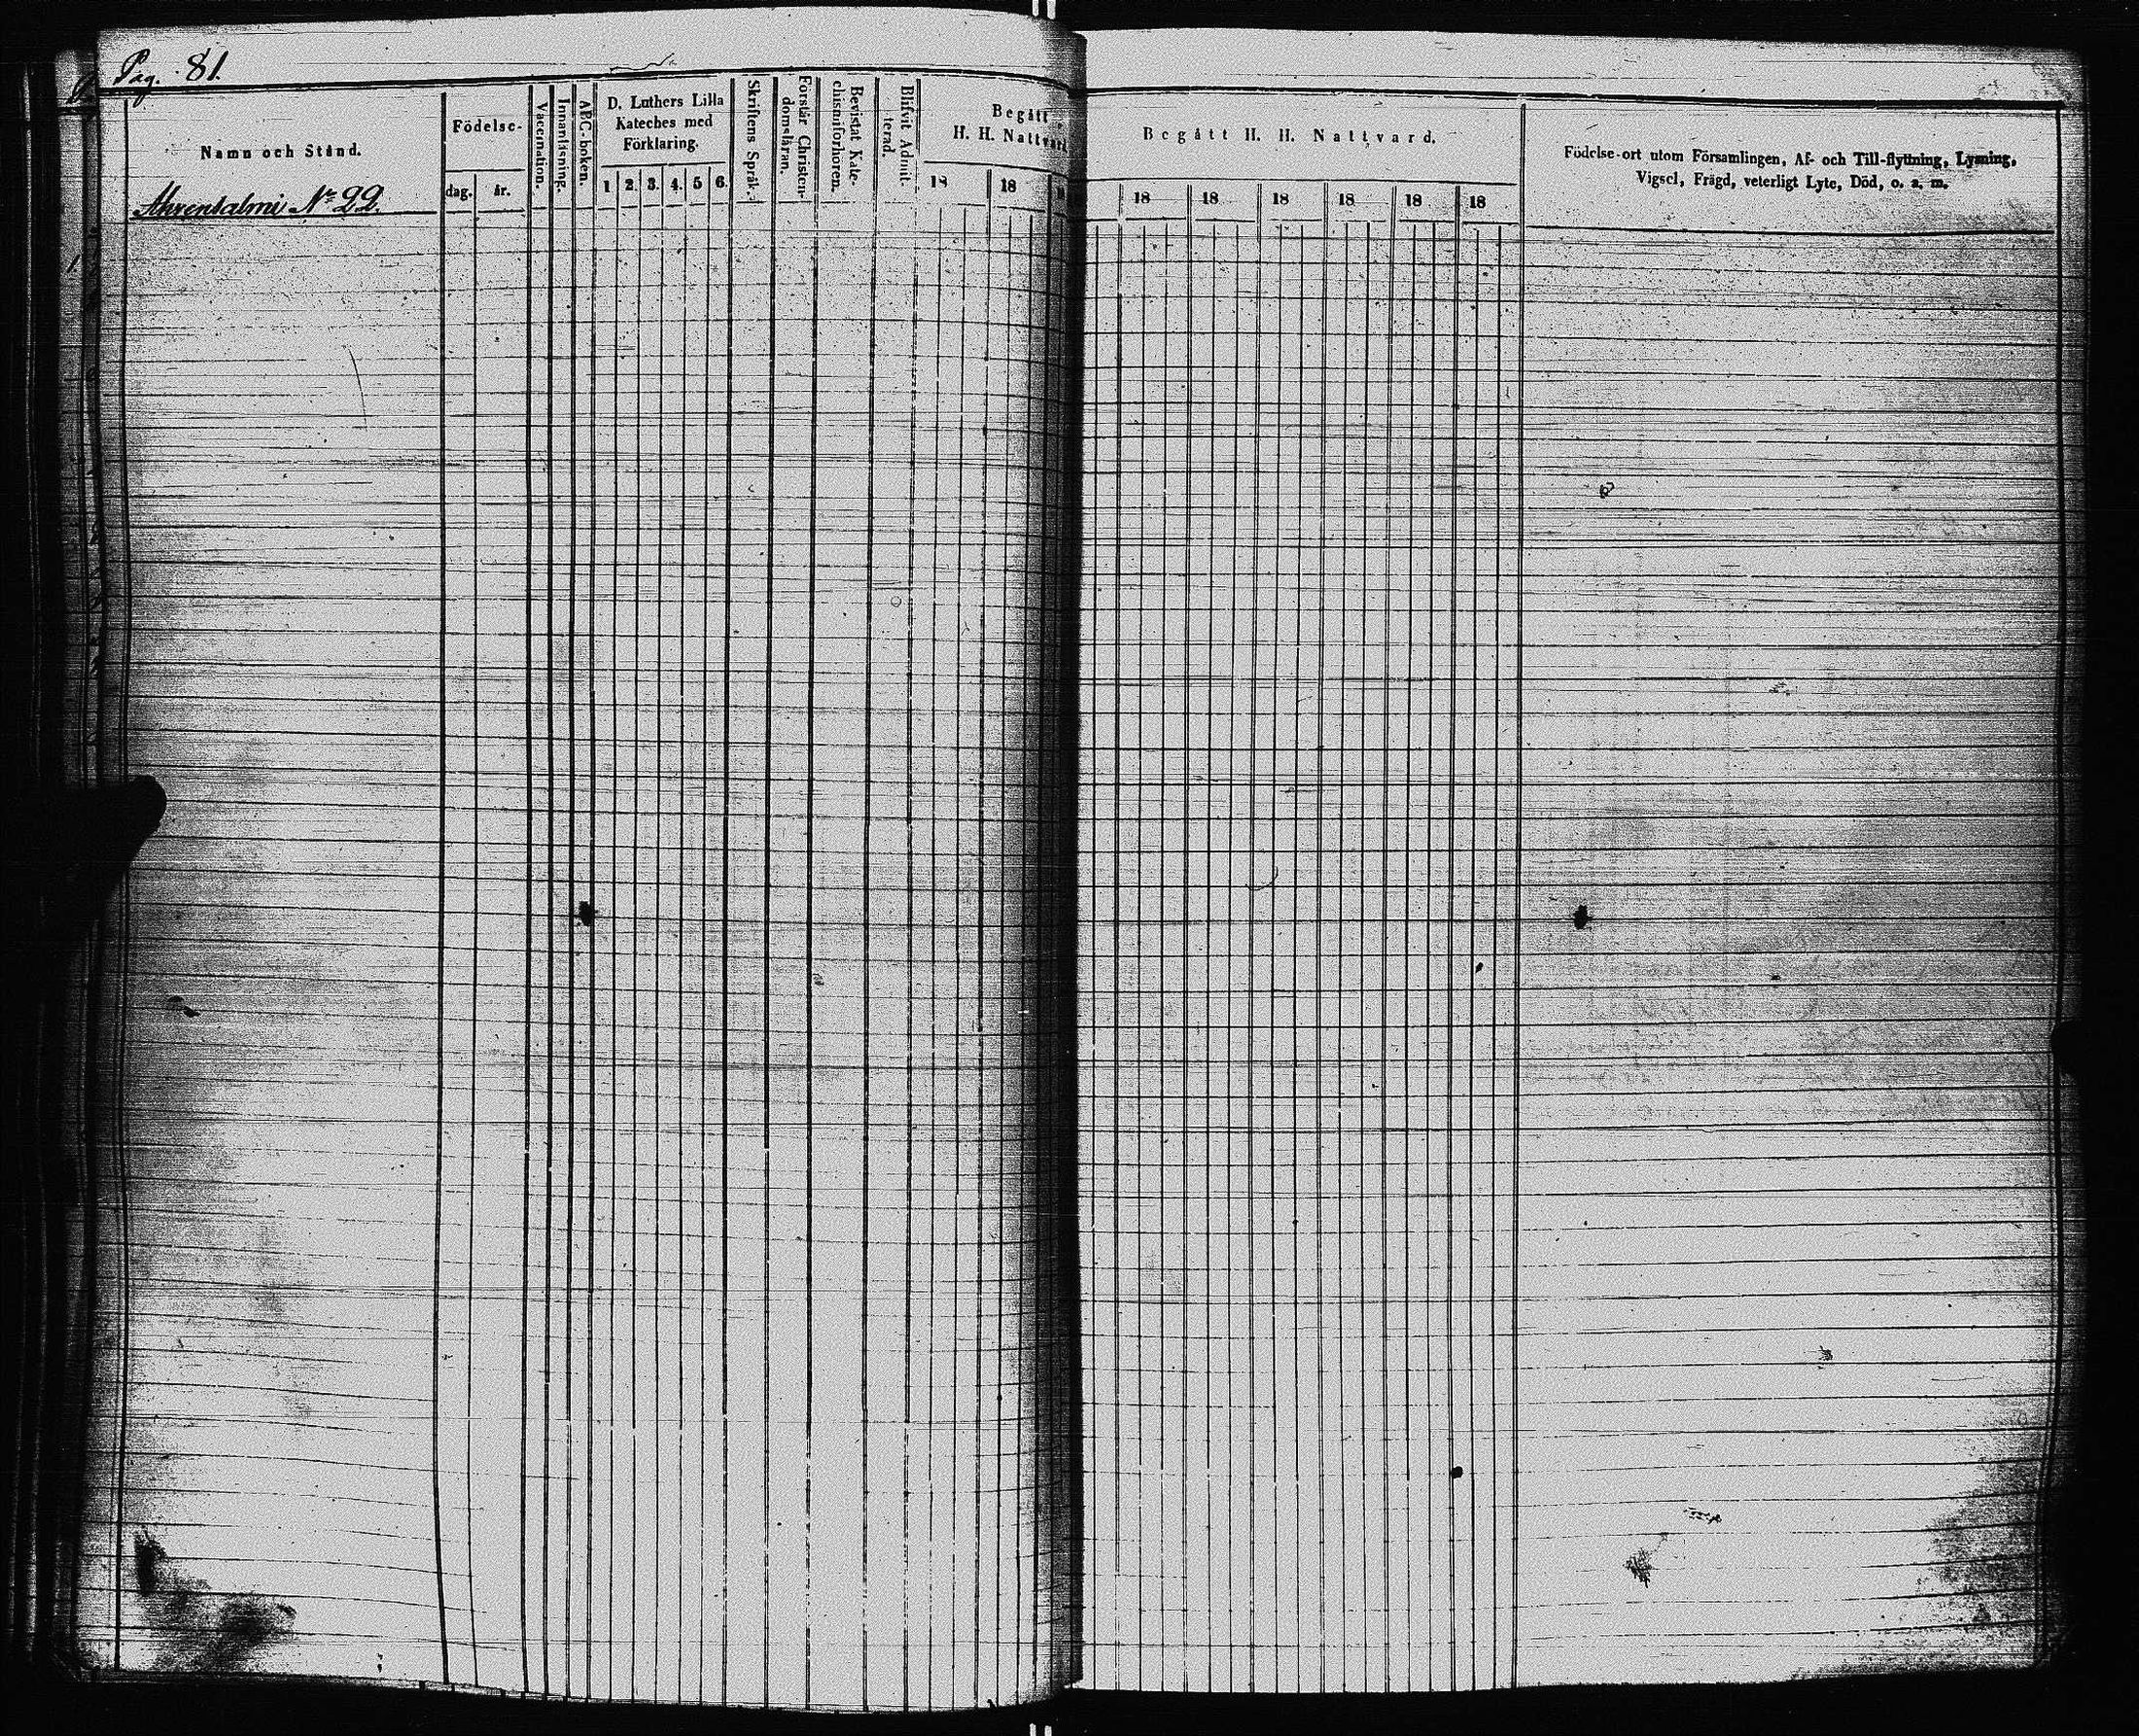 Pag. 81.
Namn och Stånd.
Ahrensalmi No 22.
Födelse-
dag.
år.
Vaccination.
Innanläsning.
ABC-boken.
D. Luthers Lilla
Kateches med
Förklaring.
1 2. 3. 4. 5 6.
Skriftens Språk.
Förstår Christen-
domsläran.
Bevistat Kate-
chismiförhören.
Blifvit Admit-
terad.
Begått
H. H. Nattvard
18 18
Begått H. H. Nattvard.
18 18 18 18 18 18
Födelse-ort utom Församlingen, Af- och Till-flyttning, Lysning,
Vigsel, Frägd, veterligt Lyte, Död, o. s. m.